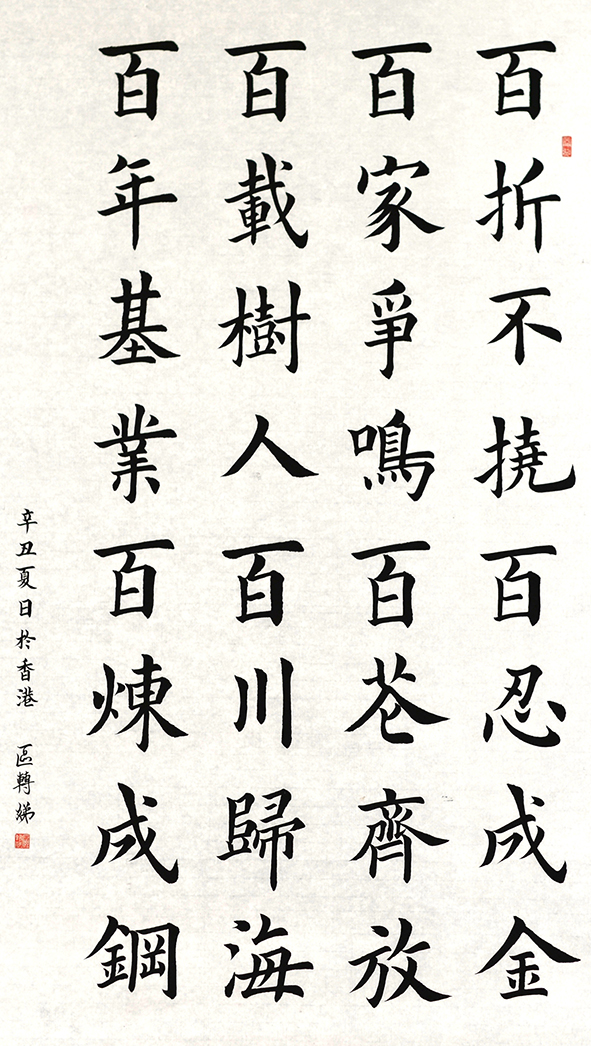 百折不撓百忍成金
百家爭鳴百花齊放
百載樹人百川歸海
百年基業百煉成鋼
辛丑夏日於香港 區轉娣